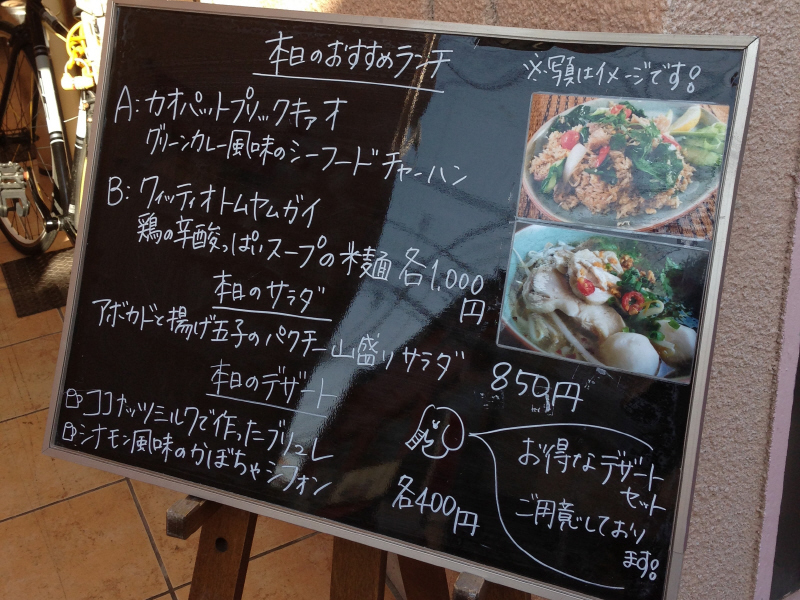 本日のおすすめランチ
※写真はイメージです!
A:カオパットプリックキァオ
グリーンカレー風味のシーフードチャーハン
B:クィッティオトムヤムガイ
鶏の辛酸っぱいスープの米麺 各1,000円
本日のサラダ
アボカドと揚げ玉子のパクチー山盛りサラダ 850円
本日のデザート
ココナッツミルクで作ったブリュレ
シナモン風味のかぼちゃシフォン
各400円
お得なデザート
セット
ご用意しており
ます!